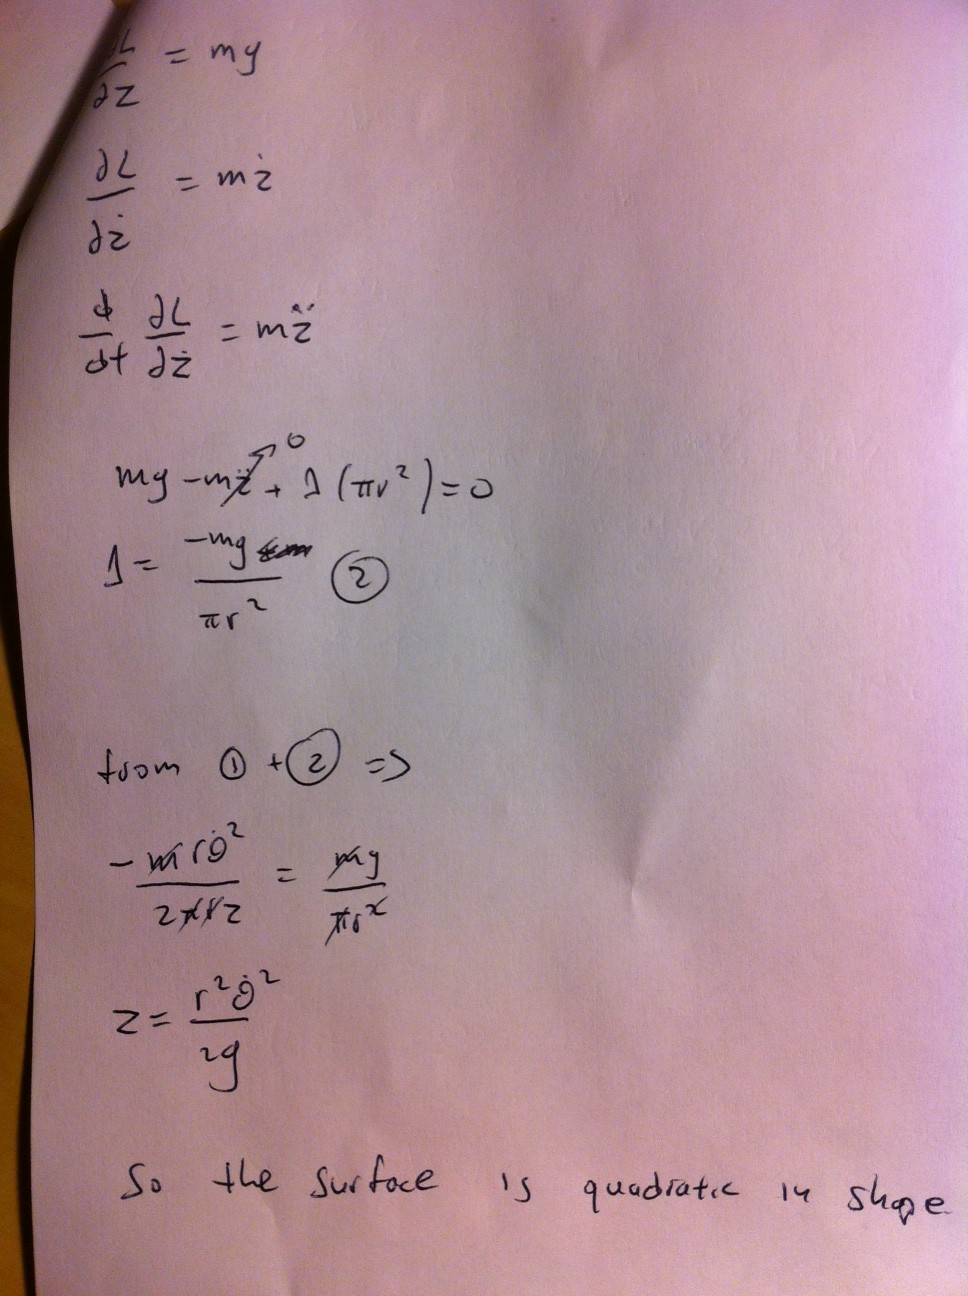 ∂L/∂z = mg
∂L/∂ż = mż
d/dt ∂L/∂ż = mz̈
mg - mz̈ → 0 + λ (πr²) = 0
λ = -mg / πr² ②
from ① + ② =>
-mrθ̇² / 2πrz = mg / πr²
z = r²θ̇² / 2g
So the surface is quadratic in shape